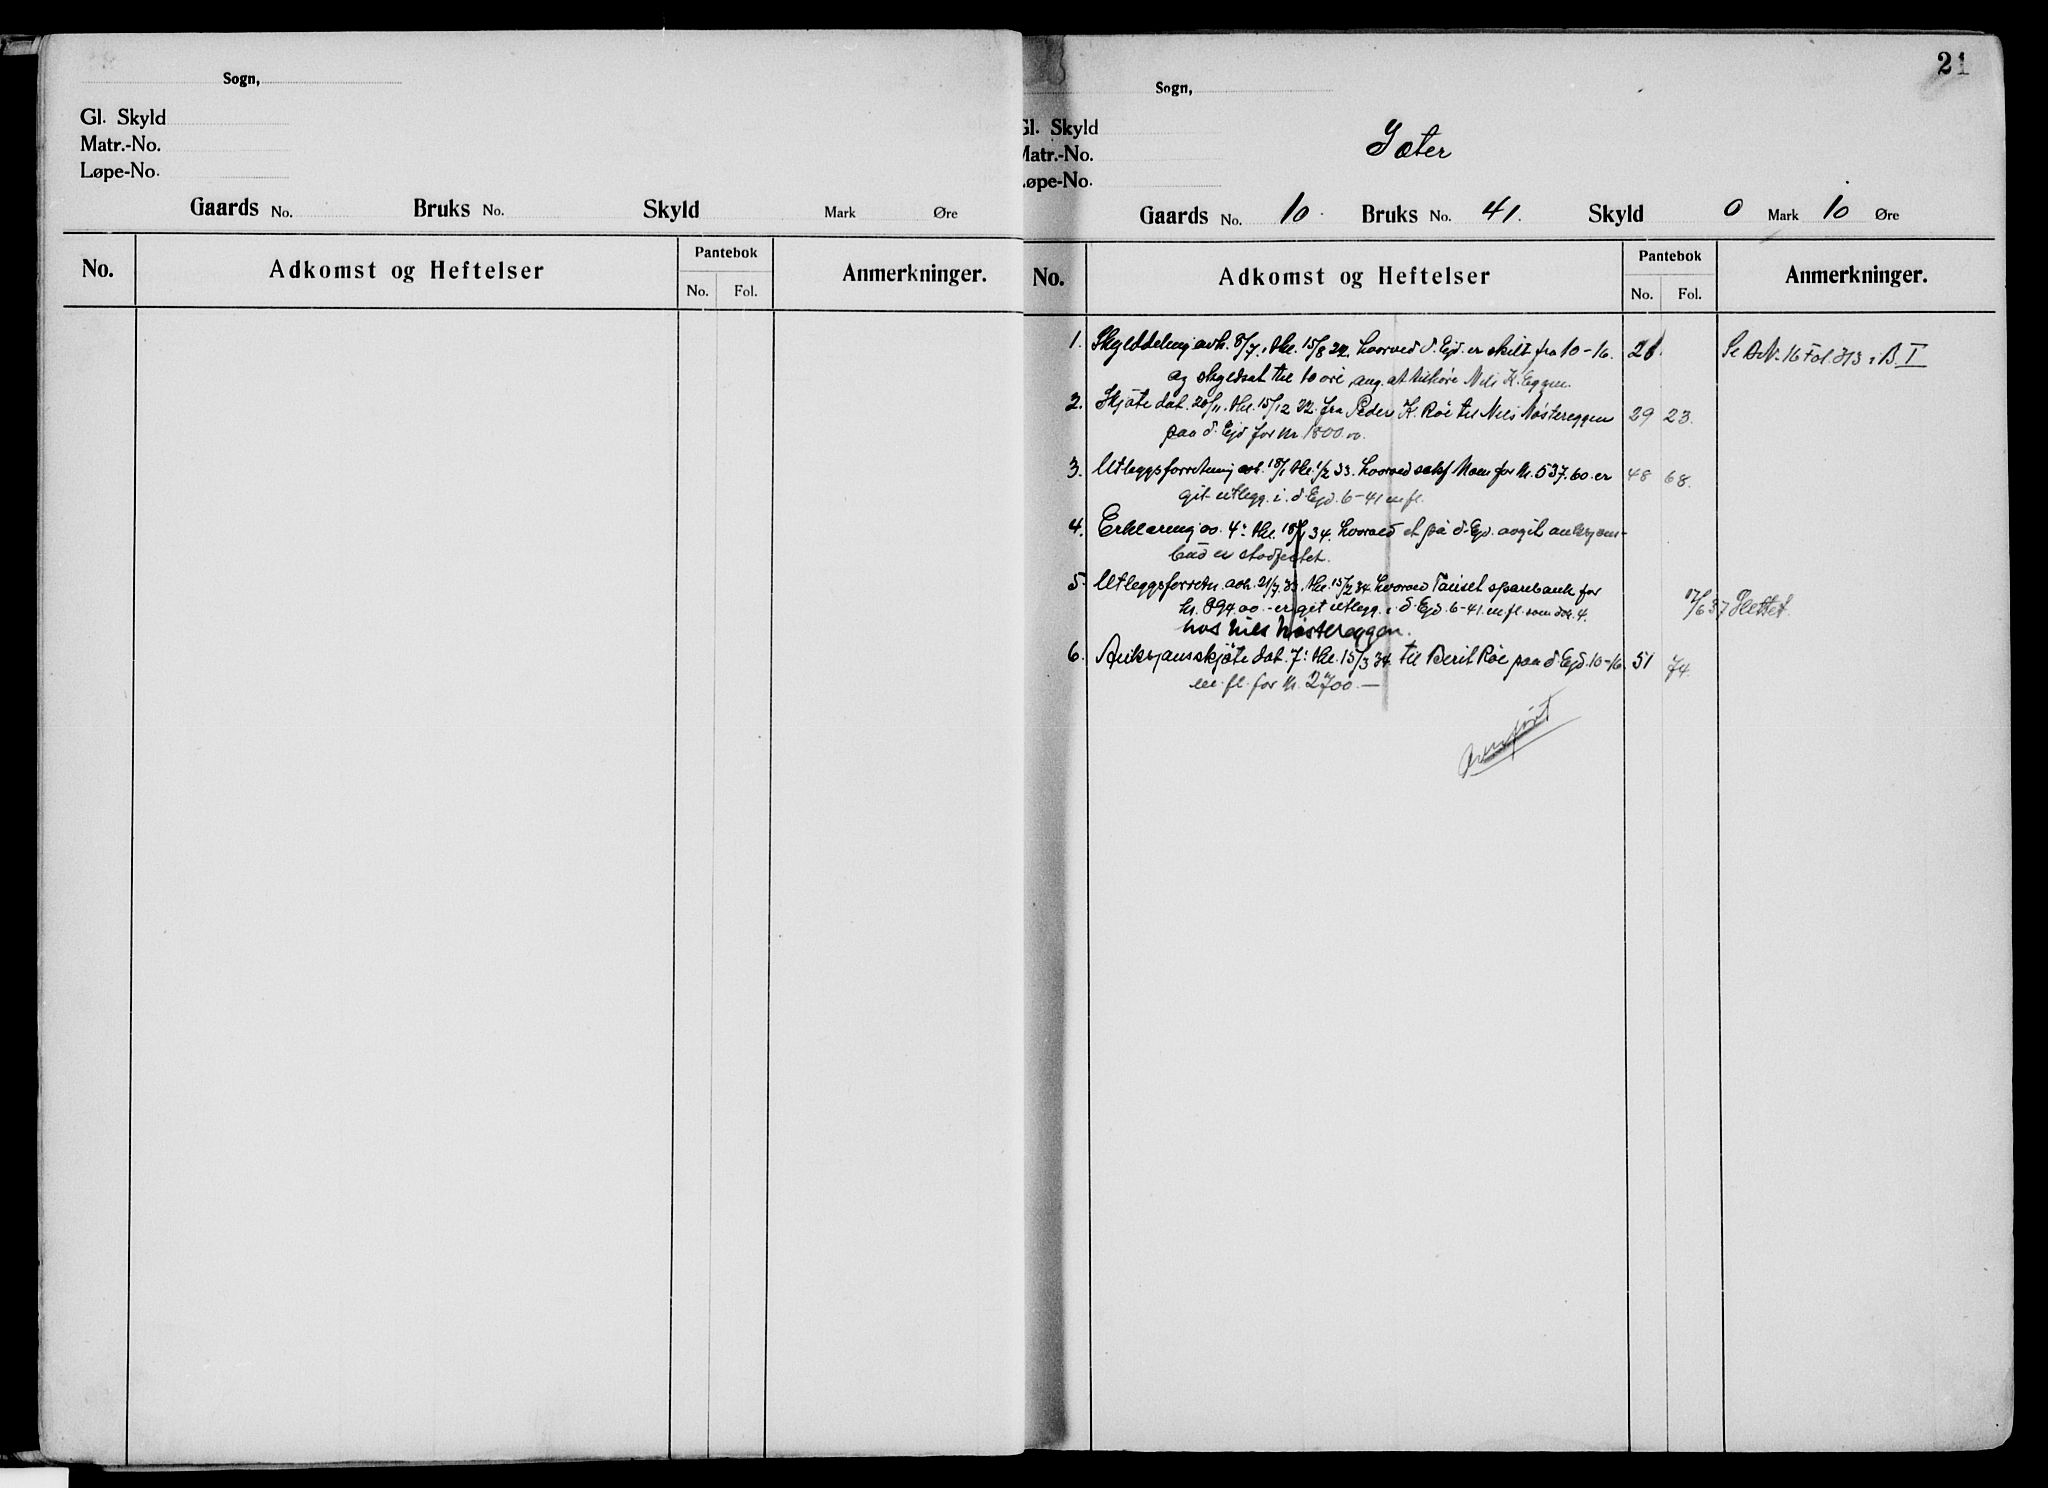 Sogn,
Gl. Skyld
Matr.-No.
Løpe-No.
Gaards No. Bruks No. Skyld Mark Øre
No. Adkomst og Heftelser Pantebok Anmerkninger.
No. Fol.
21
Sogn,
Gl. Skyld
Matr.-No. Sæter
Løpe-No.
Gaards No. 10. Bruks No. 41. Skyld 0 Mark 10 Øre
No. Adkomst og Heftelser Pantebok Anmerkninger.
No. Fol.
1. Skylddeling avh. 8/7, thl. 15/8 22. hvorved d. Ejd. er skilt fra 10-16. 21. Se A.N. 16 Fol. 313 i B I
og skyldsat til 10 øre, ang. at tilhøre Nils K. Eggen.
2. Skjøte dat. 20/11, thl. 15/12 22. fra Peder K. Røe til Nils Nøstereggen 29 23.
paa d. Ejd for kr. 1800.00.
3. Utleggsforretning avh. 18/1 thl. 1/2 33. hvorved sakf Moen for kr. 537.60. er 48 68.
git utlegg. i. d. Ejd. 6-41 m fl.
4. Erklæring av 4: thl. 18/1 34. hvorved et på d. Ejd. avgit auksjons-
bud er stadfestet.
5. Utleggsforretn. avh. 21/7 33. thl. 15/2 34. hvorved Tanset sparebank for
kr. 894.00.- er git utlegg. i. d. Ejd. 6-41. m fl. som dok. 4. 17/6 37 Slettet.
hos Nils Nøstereggen.
6. Auksjonsskjøte dat. 7: thl. 15/3 34. til Berit Røe paa d. Ejd. 10-16. 51 74.
m. fl. for kr. 2700.—
Overført